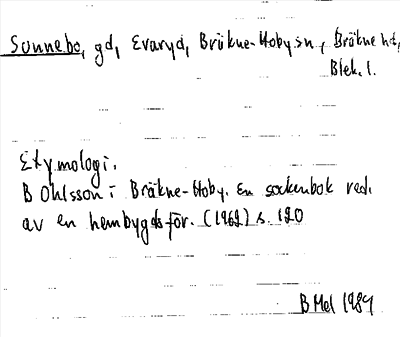 Sunnebo, gd, Evaryd, Bräkne-Hoby sn, Bräkne hd,
Blek. l.
Etymologi.
B Ohlsson i Bräkne-Hoby. En sockenbok red.
av en hembygdsför. (1962) s. 120
B Mel 1984